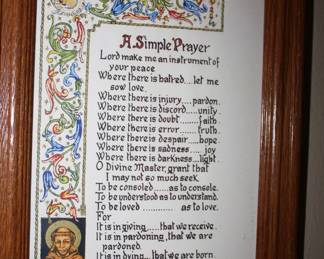 A Simple Prayer
Lord make me an instrument of
your peace
Where there is hatred... let me
sow love.
Where there is injury..... pardon.
Where there is discord.....unity.
Where there is doubt........faith.
Where there is error........ truth.
Where there is despair.....hope.
Where there is sadness..... joy
Where there is darkness...light.
O Divine Master, grant that
I may not so much seek
To be consoled......as to console.
To be understood as to understand.
To be loved ............ as to love.
For
It is in giving.....that we receive.
It is in pardoning, that we are
pardoned.
It is in dying... that we are born.